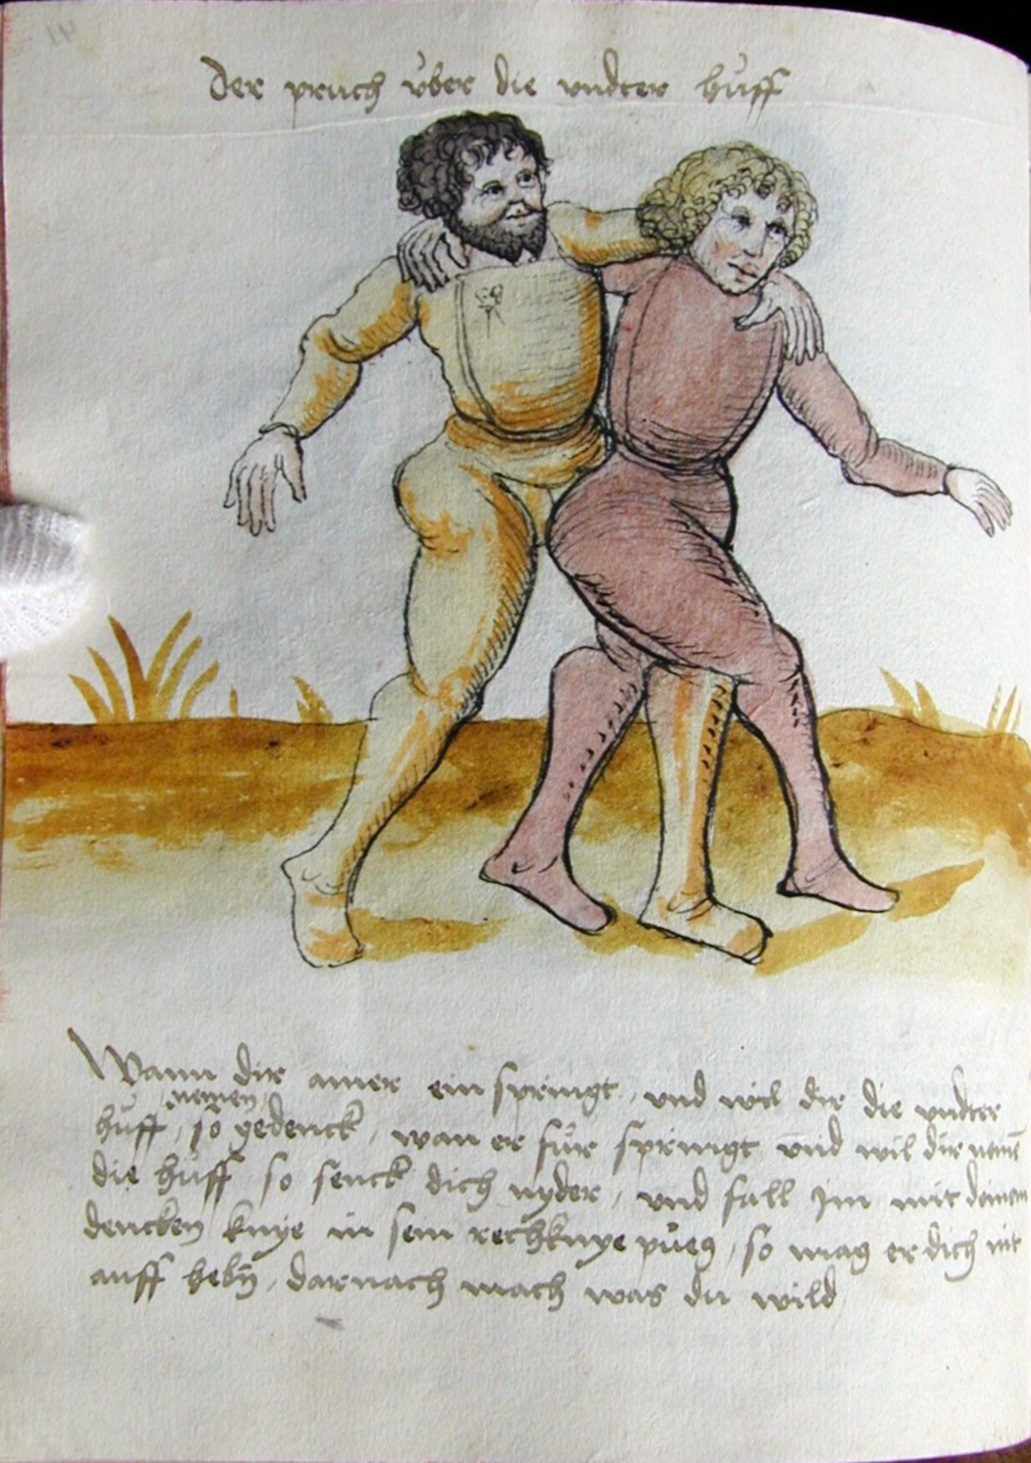 Der pruch vber die vndter huff
Wann dir ainer ein springt, vnd wil dir die vndter
nemen
huff, so gedenck, wan er für springt vnd wil dir nemē
die huff so senck dich nyder, vnd fall im mit deinem
dencken knye in sein rechknye pueg, so mag er dich nit
auff hebn̄, darnach mach was du wild